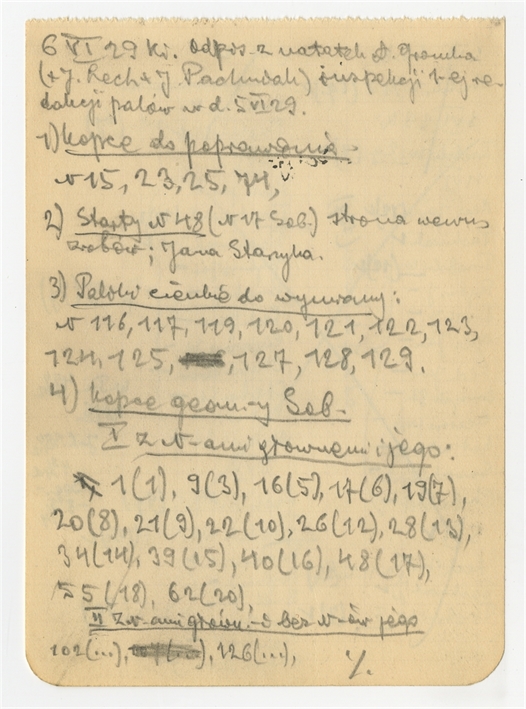 6 VI 29 Ki. Odpis z notatek A. Gromka
(+J. Rech + J. Pachniak) z inspekcji 1-ej re-
dakcji palów w d. 5 VI 29.
1) Kopce do poprawienia
N 15, 23, 25, 74,
2) Starty N 48 (N 17 Sob.) strona wewn
; Jana Starzyka.
3) Paliki cienkie do wymiany:
N 116, 117, 119, 120, 121, 122, 123,
124, 125, 127, 128, 129.
4) Kopce geom-y Sob.
I z N-ami głównemi i jego:
1(1), 9(3), 16(5), 17(6), 19(7),
20(8), 21(9), 22(10), 26(12), 28(13),
34(14), 39(15), 40(16), 48(17),
55(18), 62(20),
II z N-ami główn. i bez N-ów jego
102(...), 126(...),
%.